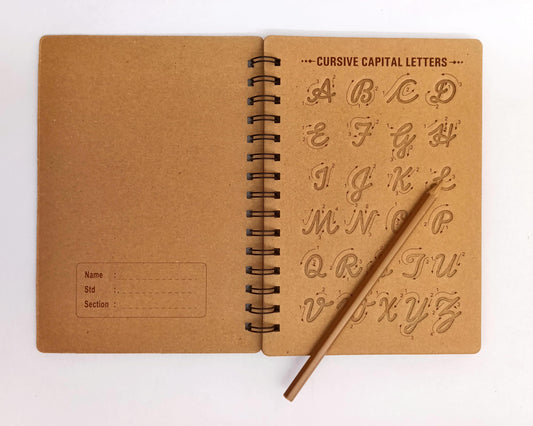 Name :
Std :
Section :
CURSIVE CAPITAL LETTERS
A B C D
E F G H
I J K L
M N O P
Q R T U
V W X Y Z